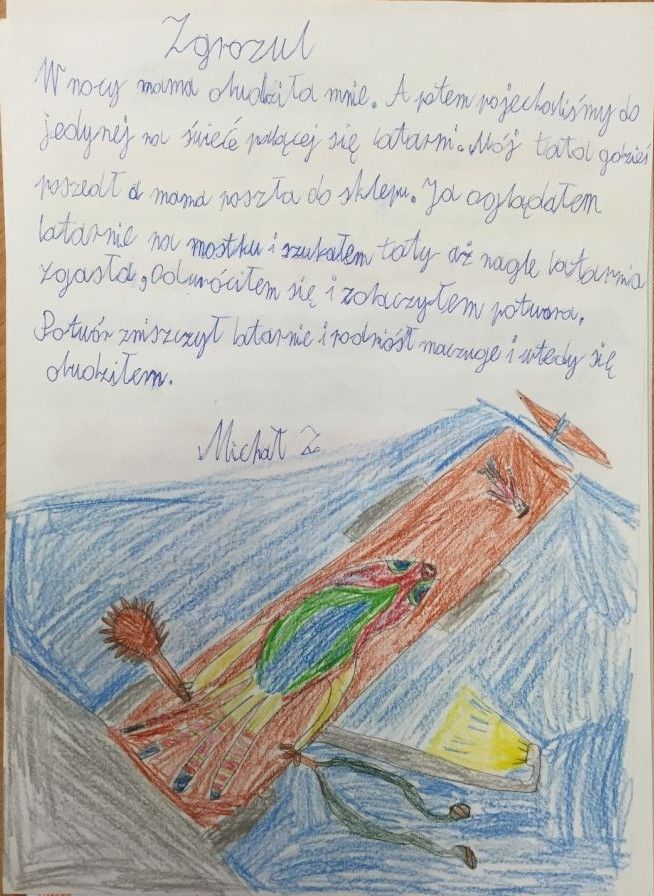 Zgrozul
W nocy mama obudziła mnie. A potem pojechaliśmy do
jedynej na świecie palącej się latarni. Mój tata gdzieś
poszedł a mama poszła do sklepu. Ja oglądałem
latarnie na mostku i szukałem taty aż nagle latarnia
zgasła, Odwróciłem się i zobaczyłem potwora.
Potwór zniszczył latarnie i podniósł maczuge i wtedy się
obudziłem.
Michał Z